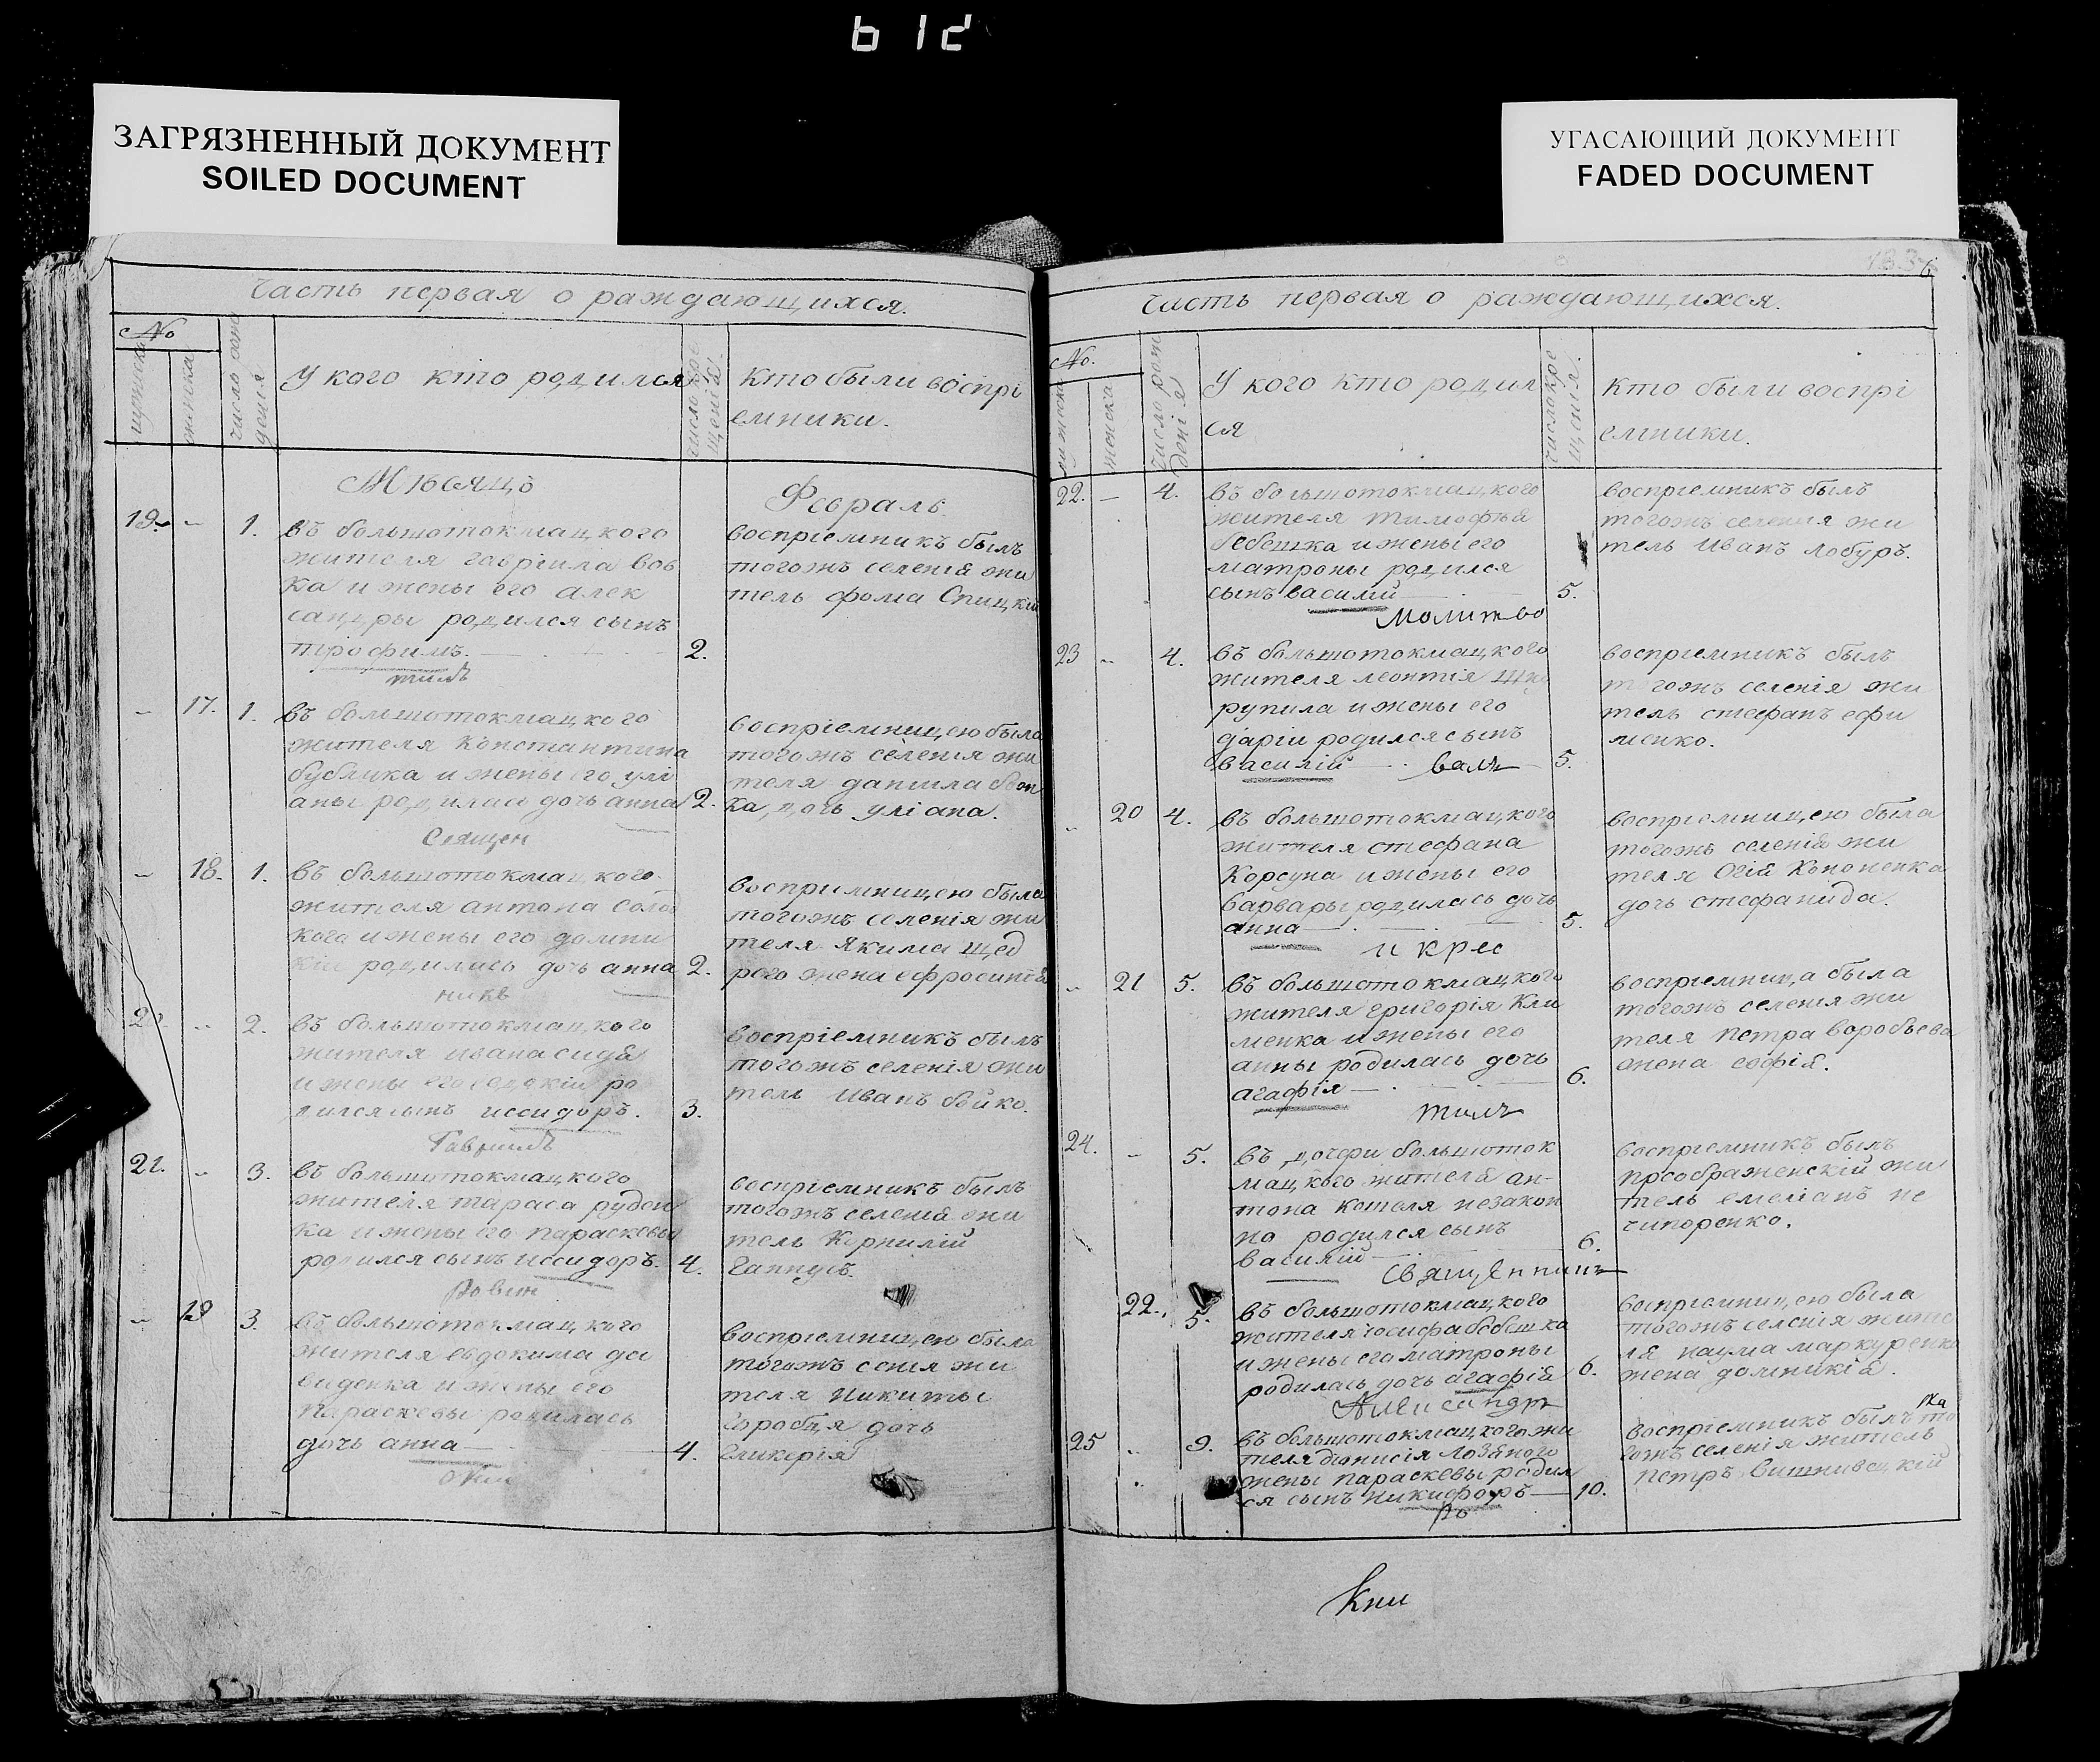 612
ЗАГРЯЗНЕННЫЙ ДОКУМЕНТ
SOILED DOCUMENT
УГАСАЮЩИЙ ДОКУМЕНТ
FADED DOCUMENT
Часть первая о раждающихся.
№
мужеска
женска
число рож
денія
У кого кто родился
число кре
щенія.
Кто были воспрі
емники.
Мѣсяцъ
Февраль.
19. 1.
въ большотокмацкого
жителя гавріила вов
ка и жены его алек
сандры родился сынъ
трофимъ. 2.
воспріемникъ былъ
тогожъ селенія жи
тель фома Спицкій
тилъ
17. 1.
въ большотокмацкого
жителя Константина
бублика и жены его улі
аны родилась дочь анна 2.
воспріемницею была
тогожъ селенія жи
теля данила
ка дочь уліана.
Священ
18. 1.
въ большотокмацкого
жителя антона
кого и жены его домни
кіи родилась дочь анна 2.
воспріемницею была
тогожъ селенія жи
теля Якима щед
рого жена ефросинія
никъ
2.
въ большотокмацкого
жителя ивана сидя
и жены его ро
дился сынъ иссидоръ. 3.
воспріемникъ былъ
тогожъ селенія жи
тель Иванъ бойко.
Гавриилъ
21. 3.
въ большотокмацкого
жителя тараса руден
ка и жены его параскевы
родился сынъ иссидоръ. 4.
воспріемникъ былъ
тогожъ селенія жи
тель Корнилій
Ганнусъ.
19 3.
въ большотокмацкого
жителя евдокима да
виденка и жены его
параскевы родилась
дочь анна 4.
воспріемницею была
тогожъ сенія жи
теля Никиты
горобця дочь
гликерія
Часть первая о раждающихся.
№.
мужеска
женска
число рож
денія
У кого кто родил
ся
число кре
щенія.
Кто были воспрі
емники.
22. 4.
въ большотокмацкого
жителя тимофѣя
бебешка и жены его
матроны родился
сынъ василій 5.
воспріемникъ былъ
тогожъ селенія жи
тель Иванъ лобуръ.
Молитво
23 4.
въ большотокмацкого
жителя леонтія
рупила и жены его
даріи родился сынъ
василій 5.
воспріемникъ былъ
тогожъ селенія жи
тель стефанъ ефи
менко.
валъ
20 4.
въ большотокмацкого
жителя стефана
Корсуна и жены его
варвары родилась дочь
анна 5.
воспріемницею была
тогожъ селенія жи
теля Кононенка
дочь стефанида.
и крес
21 5.
въ большотокмацкого
жителя григорія Кли
менка и жены его
анны родилась дочь
агафія 6.
воспріемница была
тогожъ селенія жи
теля петра воробьева
жена софія.
тилъ
24. 5.
въ дочери большоток
мацкого жителя ан-
тона Кошеля незакон
но родился сынъ
василій 6.
воспріемникъ былъ
преображенскій жи
тель емеліанъ не
чипоренко.
Священникъ
22. 5.
въ большотокмацкого
жителя іосифа бебешка
и жены его матроны
родилась дочь агафія 6.
воспріемницею была
тогожъ селенія жите
ля наума маркуренка
жена домникія.
Александръ
25 9.
въ большотокмацкого жи
теля діонисія лозяного
жены параскевы родил
ся сынъ никифоръ 10.
воспріемникъ былъ то
гожъ селенія житель
петръ Вишнивецкій
Кни